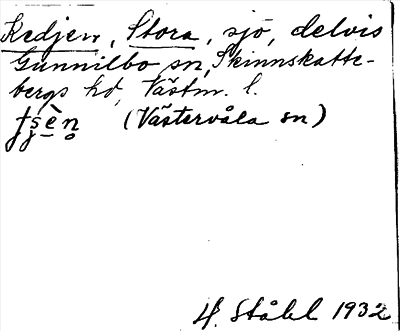 Kedjen, Stora, sjö, delvis
Gunnilbo sn, Skinnskatte-
bergs hd, Västm. l.
(Västervåla sn)
H. Ståhl 1932